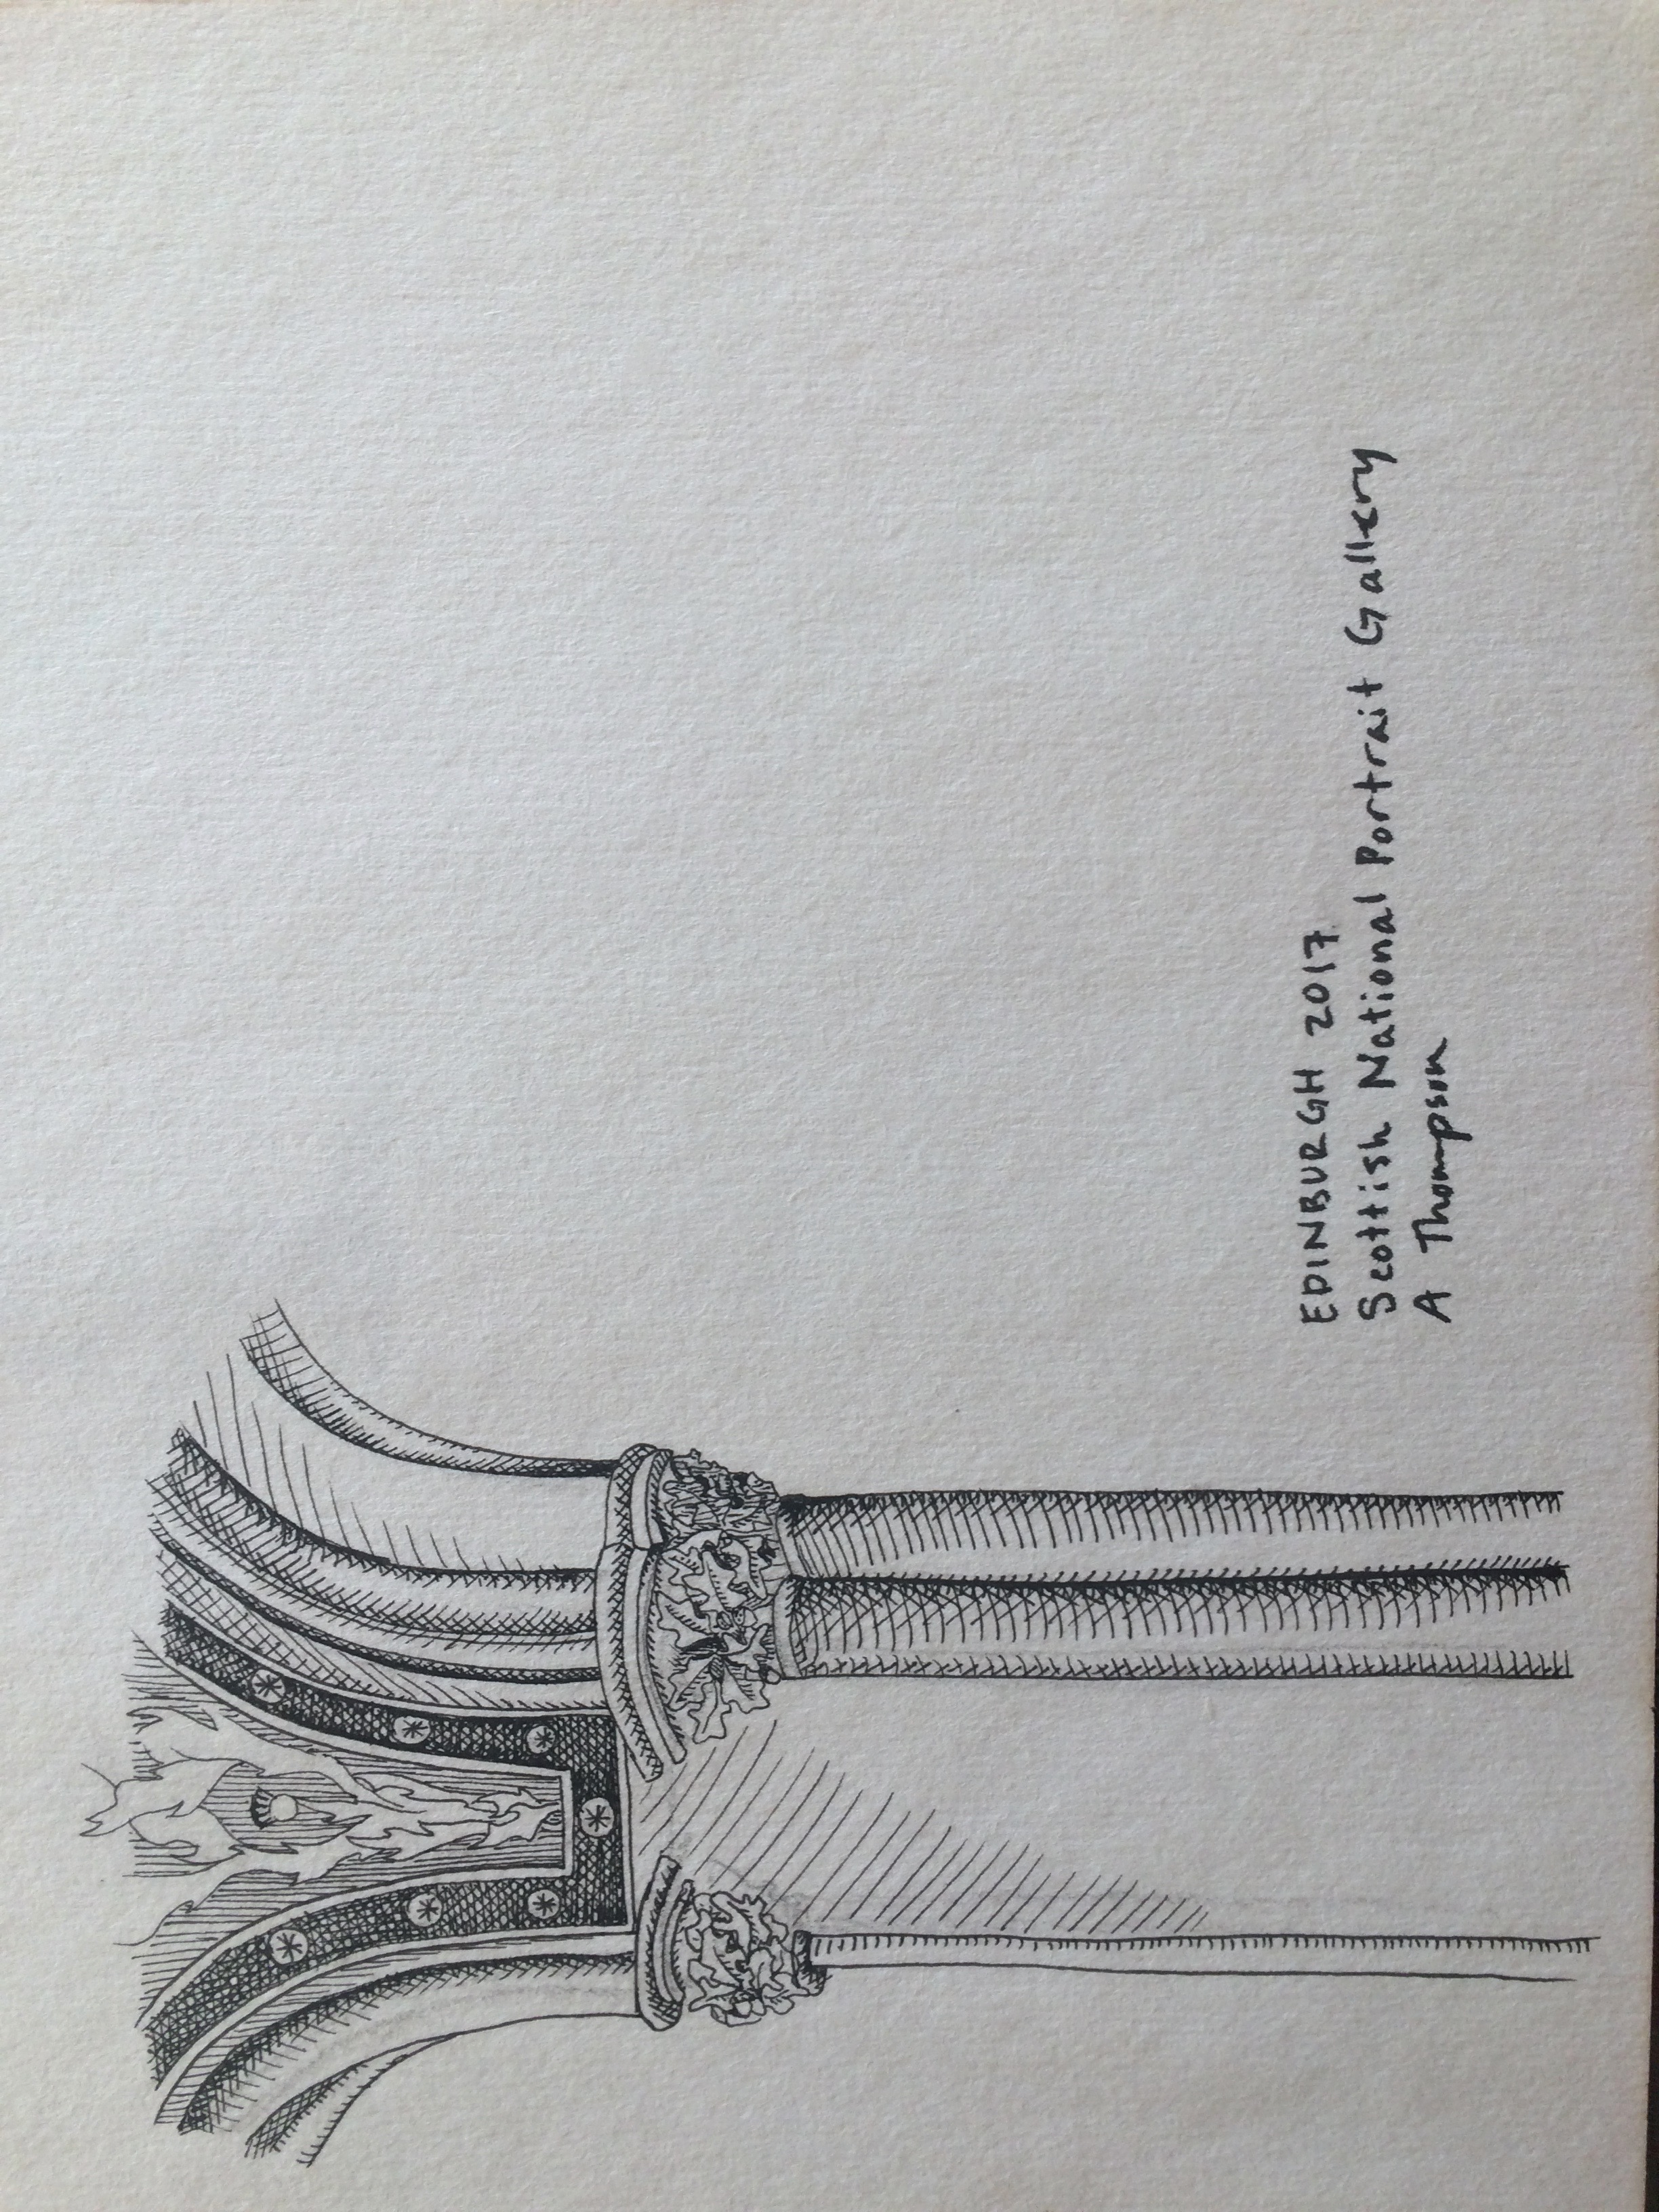 EDINBURGH 2017
Scottish National Portrait Gallery
A Thompson